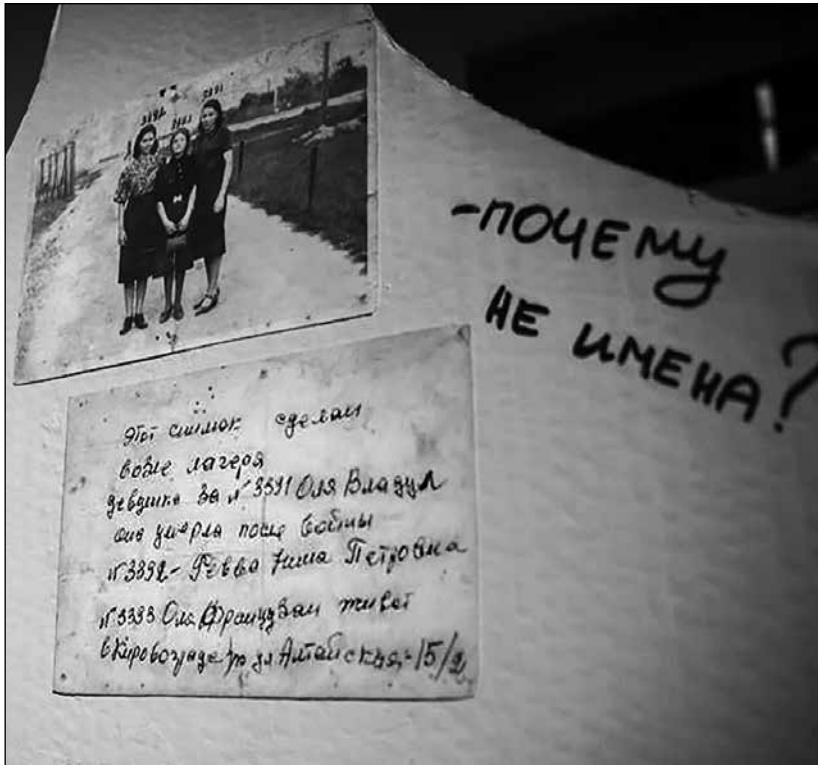 3392 3393 3391
-ПОЧЕМУ
НЕ ИМЕНА?
Этот снимок сделан
возле лагеря
девушка за №3391 Оля Владул
она умерла после войны
№3392 - Ревва Нина Петровна
№3393 Оля Французан живет
в Кировограде по ул Алтайская 15/2